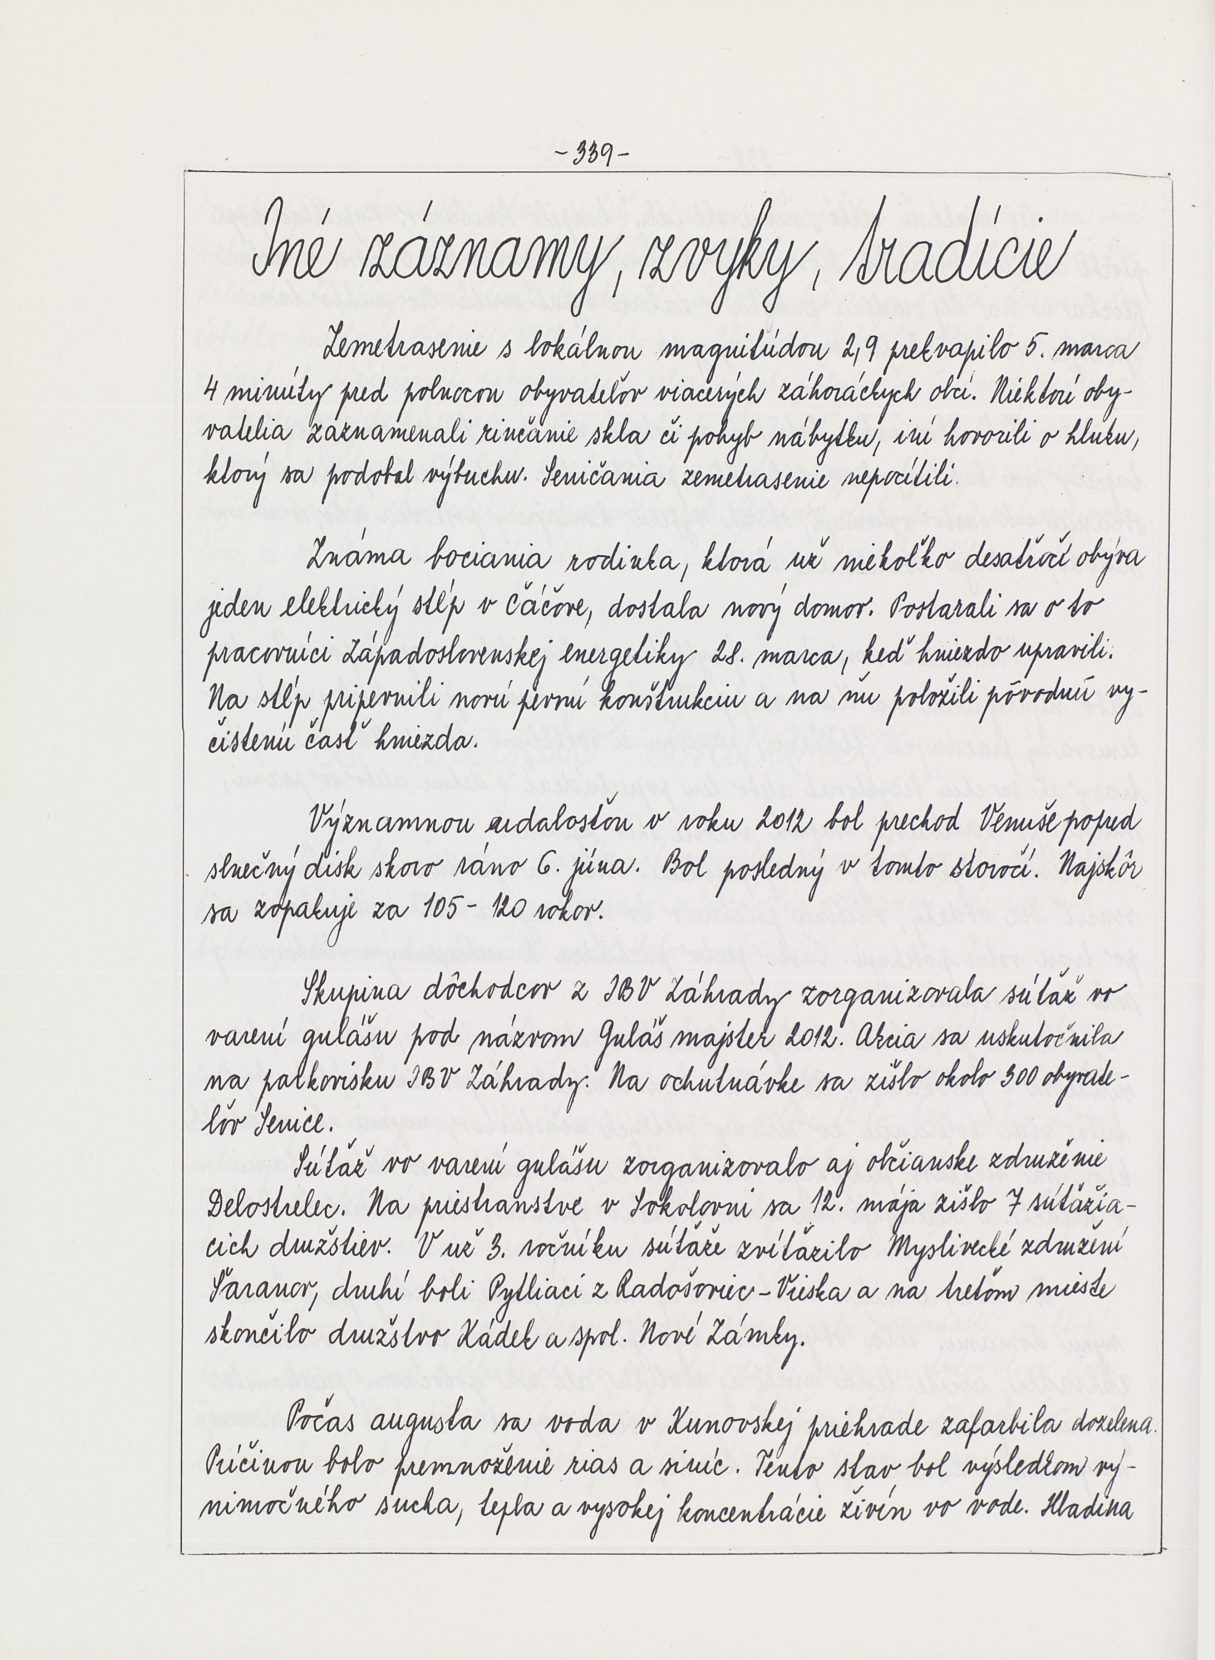 -339-
Iné záznamy, zvyky, tradície
Zemetrasenie s lokálnou magnitúdou 2,9 prekvapilo 5. marca
4 minúty pred polnocou obyvateľov viacerých záhoráckych obcí. Niektorí oby-
vatelia zaznamenali rinčanie skla či pohyb nábytku, iní hovorili o hluku,
ktorý sa podobal výbuchu. Seničania zemetrasenie nepocítili.
Známa bociania rodinka, ktorá už niekoľko desaťročí obýva
jeden elektrický stĺp v Čáčove, dostala nový domov. Postarali sa o to
pracovníci Západoslovenskej energetiky 28. marca, keď hniezdo upravili.
Na stĺp pripevnili novú pevnú konštrukciu a na ňu položili pôvodnú vy-
čistenú časť hniezda.
Významnou udalosťou v roku 2012 bol prechod Venuše popred
slnečný disk skoro ráno 6. júna. Bol posledný v tomto storočí. Najskôr
sa zopakuje za 105 - 120 rokov.
Skupina dôchodcov z IBV Záhrady zorganizovala súťaž vo
varení gulášu pod názvom Guláš majster 2012. Akcia sa uskutočnila
na parkovisku IBV Záhrady. Na ochutnávke sa zišlo okolo 300 obyvate-
ľov Senice.
Súťaž vo varení gulášu zorganizovalo aj občianske združenie
Delostrelec. Na priestranstve v Sokolovni sa 12. mája zišlo 7 súťažia-
cich družstiev. V už 3. ročníku súťaže zvíťazilo Myslivecké združení
Šaranov, druhí boli Pytliaci z Radošoviec - Vieska a na treťom mieste
skončilo družstvo Kádek a spol. Nové Zámky.
Počas augusta sa voda v Kunovskej priehrade zafarbila dozelena.
Príčinou bolo premnoženie rias a siníc. Tento stav bol výsledkom vý-
nimočného sucha, tepla a vysokej koncentrácie živín vo vode. Hladina